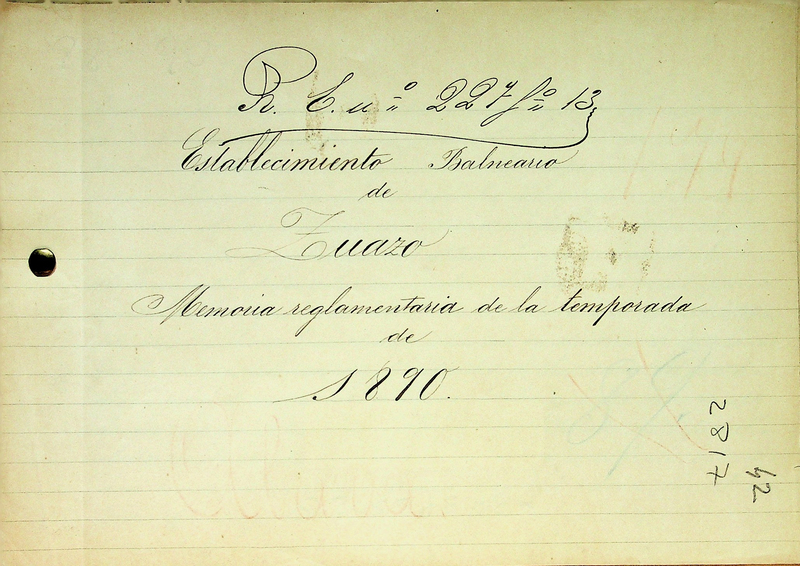 R. E. nº 227 fº 13
Establecimiento Balneario
de
Zuazo
Memoria reglamentaria de la temporada
de
1890.
2817
42